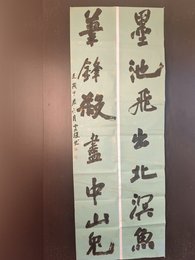 墨池飛出北溟魚
筆鋒殺盡中山兔